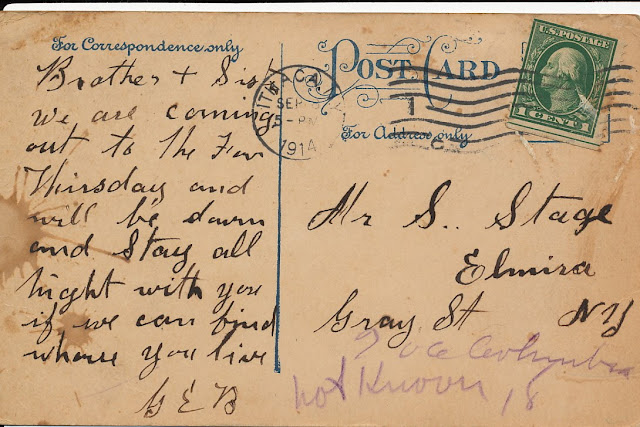 For Correspondence only
Brother + Sist
we are coming
out to the Fair
Thirsday and
will be down
and Stay all
night with you
if we can find
whare you live
G E B
POST CARD
For Address only
ITHACA
SEP
5-PM
1914
U.S. POSTAGE
1 CENT 1
Mr S. Stage
Elmira
Gray St NY
Columbia
not Known 18